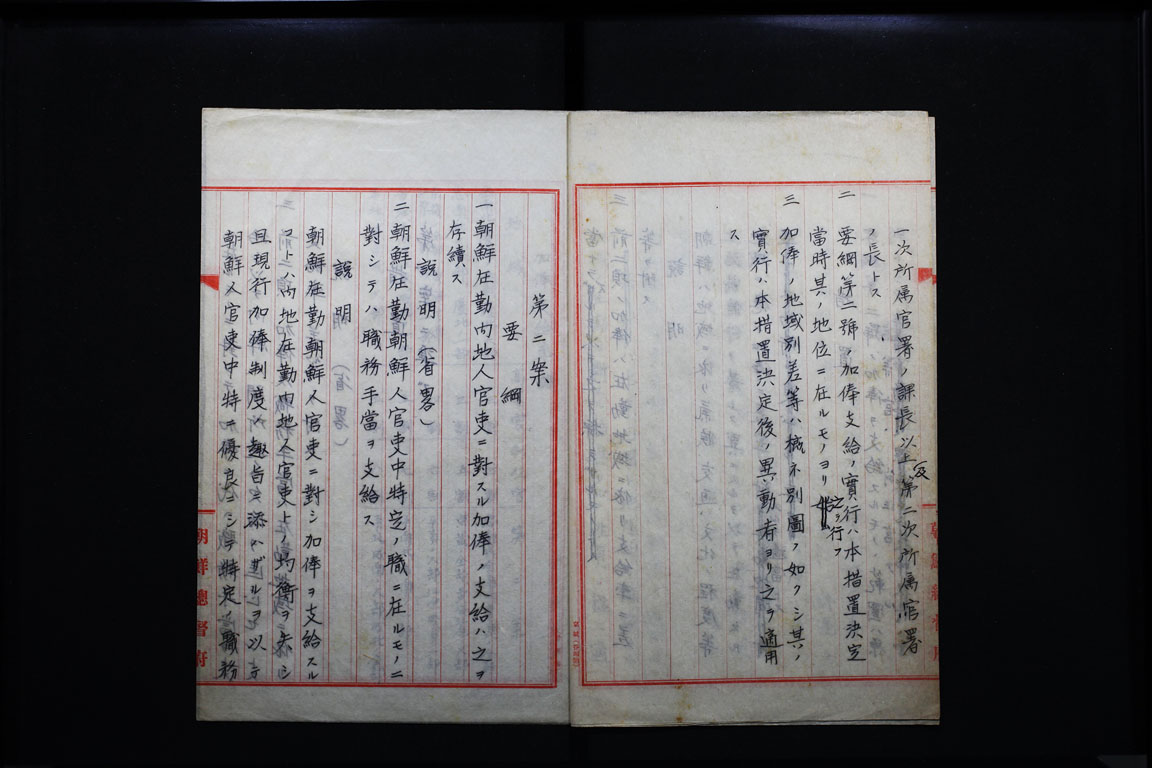 一次所属官署ノ課長以上及第二次所属官署
ノ長トス
二 要綱第二號ノ加俸支給ノ實行ハ本措置決定
當時其ノ地位ニ在ルモノヨリ之ヲ行フ
三 加俸ノ地域別差等ハ概ネ別圖ノ如クシ其ノ
實行ハ本措置決定後ノ異動者ヨリ之ヲ適用
ス
第二案
要綱
一 朝鮮在勤内地人官吏ニ對スル加俸ノ支給ハ之ヲ
存續ス
說明(省畧)
二 朝鮮在勤朝鮮人官吏中特定ノ職ニ在ルモノニ
對シテハ職務手當ヲ支給ス
說明
朝鮮在勤朝鮮人官吏ニ對シ加俸ヲ支給スル
コトハ内地在勤内地人官吏トノ均衡ヲ失シ
且現行加俸制度ノ趣旨ニ添ハザルヲ以テ
朝鮮人官吏中特ニ優良ニシテ特定ノ職務
朝鮮總督府